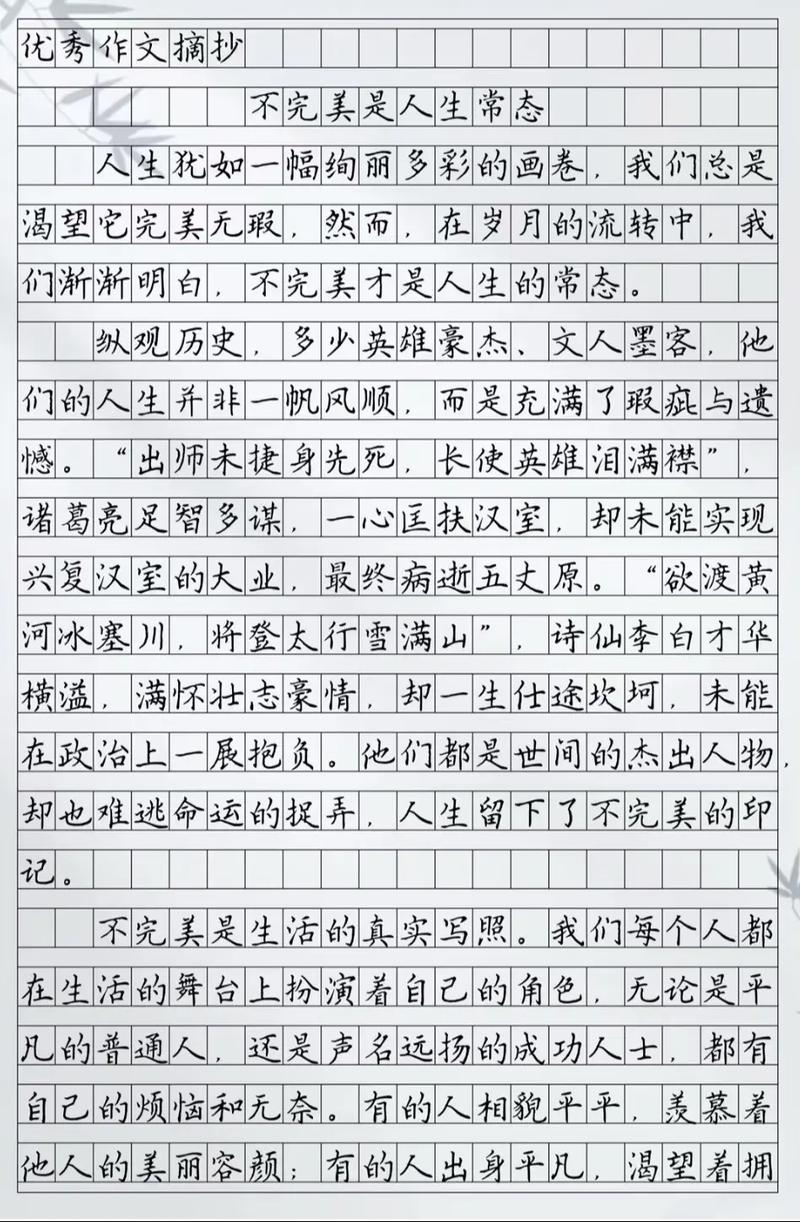 优秀作文摘抄
不完美是人生常态
人生犹如一幅绚丽多彩的画卷，我们总是
渴望它完美无瑕，然而，在岁月的流转中，我
们渐渐明白，不完美才是人生的常态。
纵观历史，多少英雄豪杰、文人墨客，他
们的人生并非一帆风顺，而是充满了瑕疵与遗
憾。“出师未捷身先死，长使英雄泪满襟”，
诸葛亮足智多谋，一心匡扶汉室，却未能实现
兴复汉室的大业，最终病逝五丈原。“欲渡黄
河冰塞川，将登太行雪满山”，诗仙李白才华
横溢，满怀壮志豪情，却一生仕途坎坷，未能
在政治上一展抱负。他们都是世间的杰出人物，
却也难逃命运的捉弄，人生留下了不完美的印
记。
不完美是生活的真实写照。我们每个人都
在生活的舞台上扮演着自己的角色，无论是平
凡的普通人，还是声名远扬的成功人士，都有
自己的烦恼和无奈。有的人相貌平平，羡慕着
他人的美丽容颜；有的人出身平凡，渴望着拥